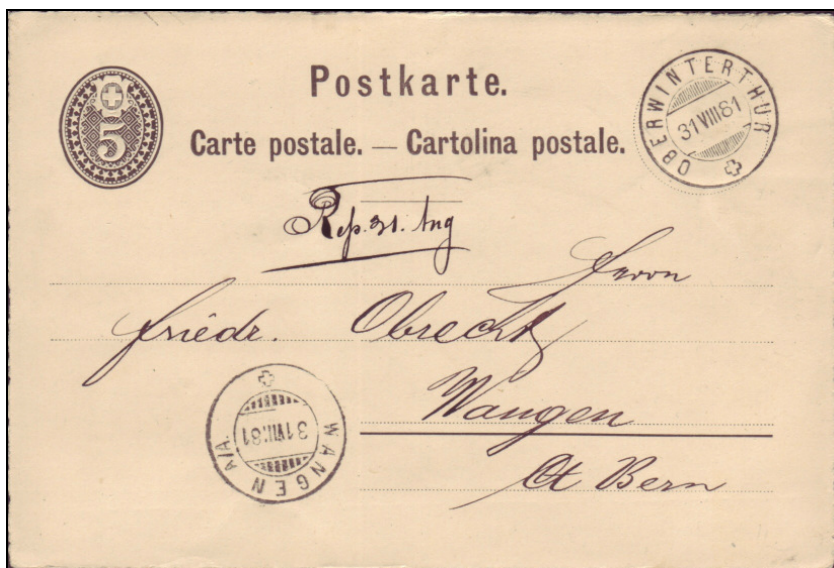 5
Postkarte.
Carte postale. — Cartolina postale.
OBERWINTERTHUR
31 VIII 81
Rep. 31. Aug
Herrn
Friedr. Obrecht
Wangen
Ct Bern
WANGEN A/A.
31 VIII 81